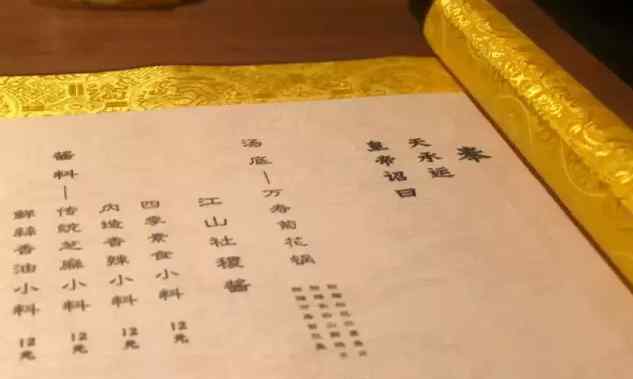 奉
天承运
皇帝诏曰
汤底—万寿菊花锅
江山社稷酱
四素食小料 12元
内香辣小料 12元
酱料—传統芝麻小料 12元
鮮香油小料 12元